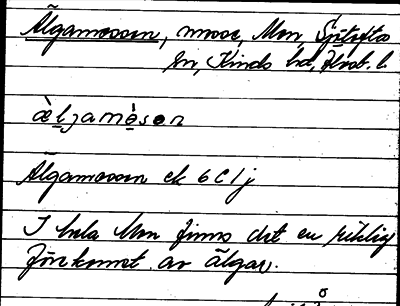 Älgamossen, mosse, Mon, Sjötofta
sn, Kinds hd, Älvsb. l.
àljamòsen
Älgamossen ek 6C1j
I hela Mon finns det en riklig
förekomst av älgar.